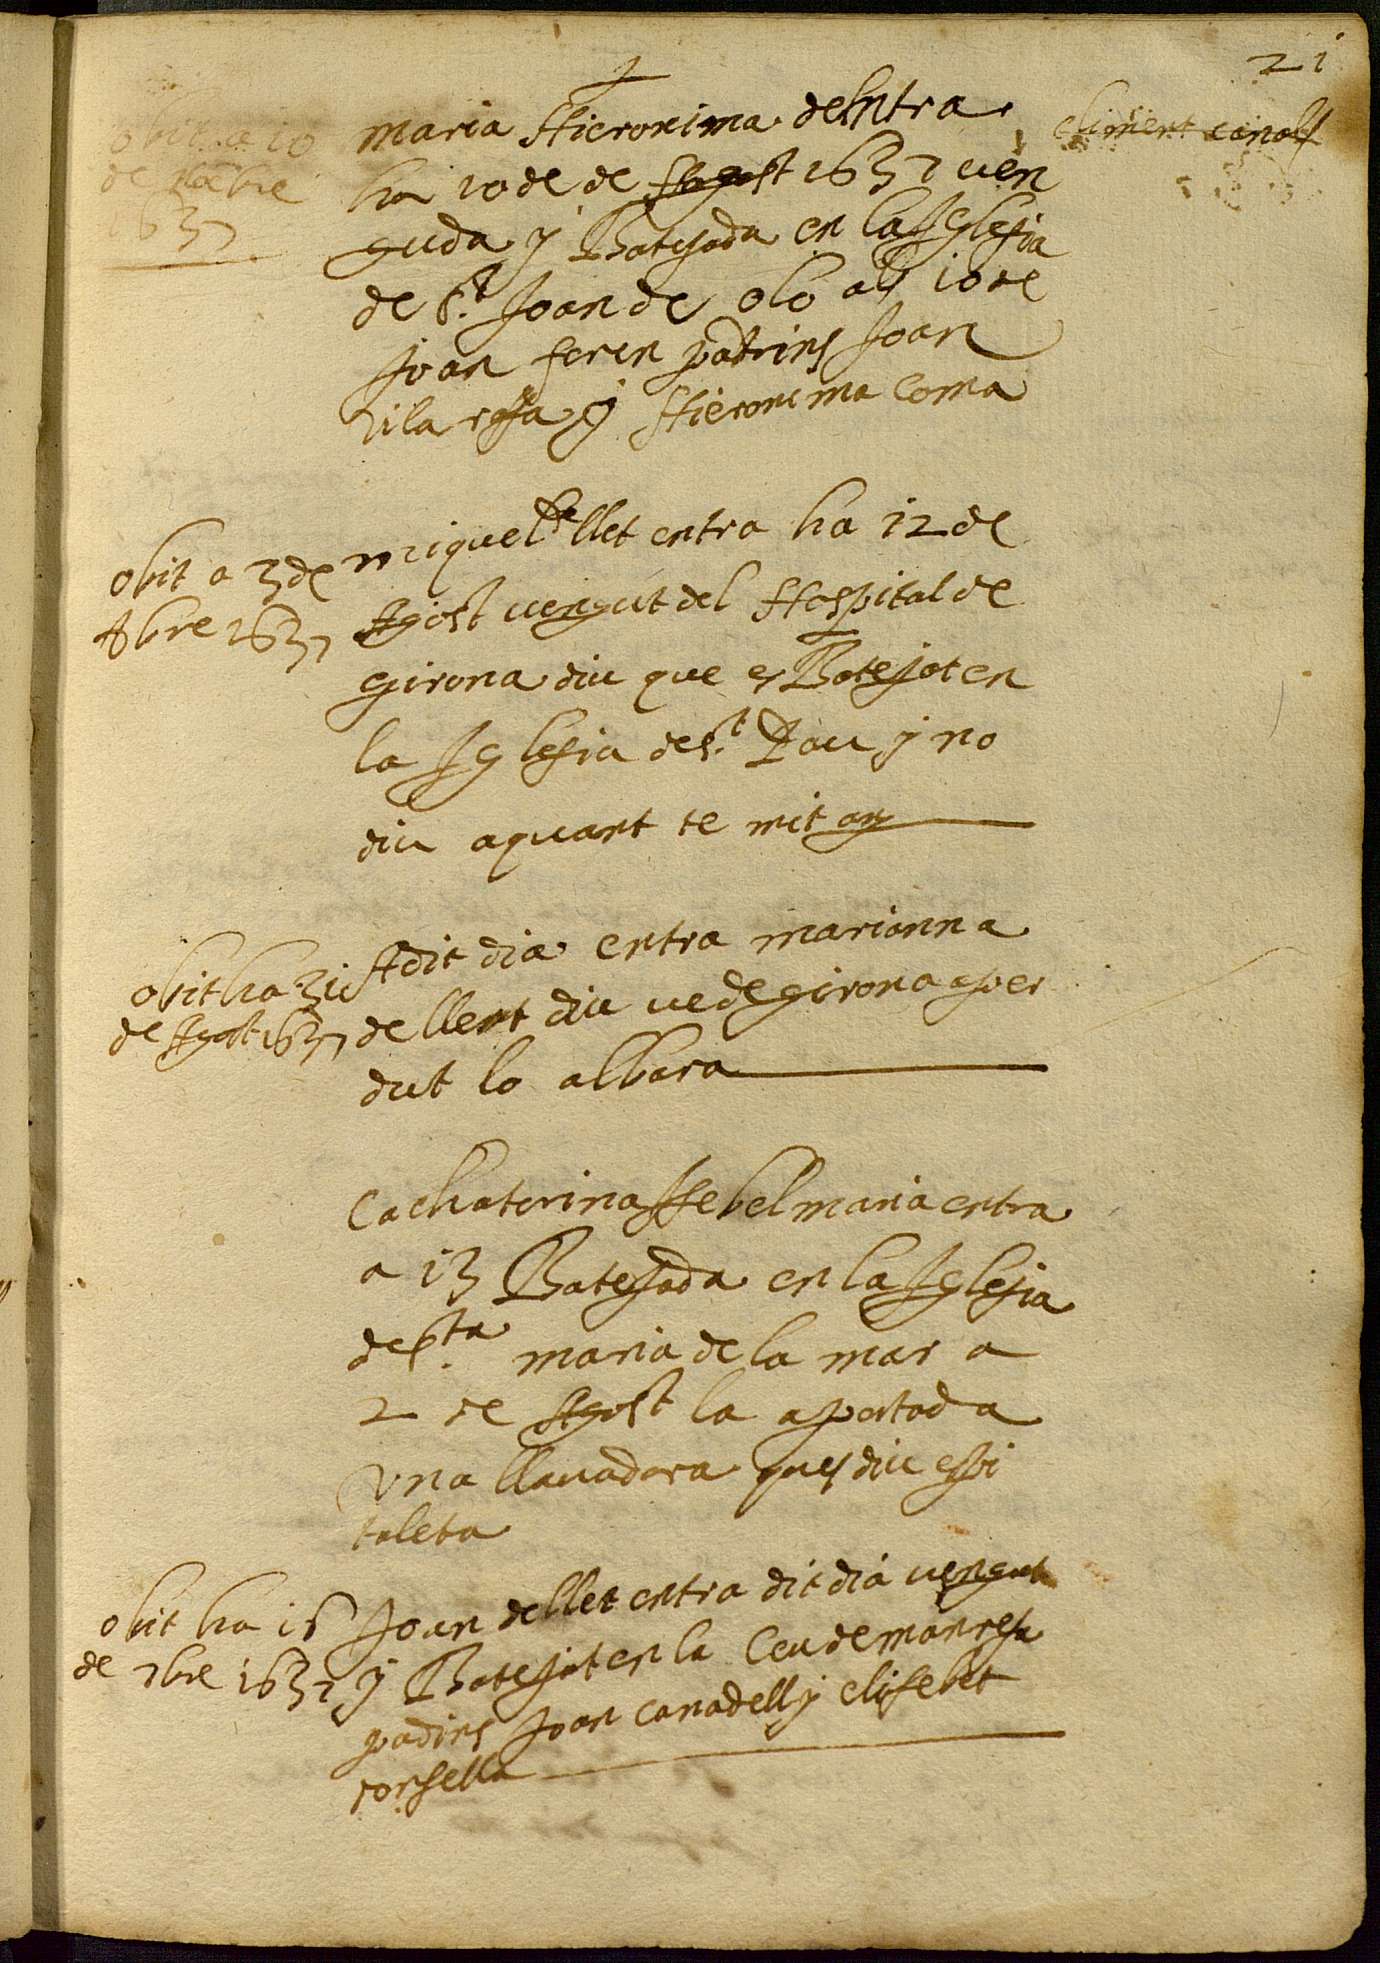 21
maria Hieronima de entra
climent canals
ha 10 de de Agost 1637 ven
guda y Batejada en la Iglesia
de St. Joan de olo als 10 de
Joan foren padrins Joan
vila rosa y Hieronima Coma
obit a 10
de 9bre
1637
miquel de llet entra ha 12 de
Agost vengut del Hospital de
girona diu que es Batejat en
la Iglesia de St. Pau y no
diu aquant te mit any
obit a 3 de
8bre 1637
A dit dia entra marianna
de llet diu ve de girona a per
dut lo albara
obit ha 31
de Agost 1637
Cachaterina Isebel maria entra
a 13 Batejada en la Iglesia
de Sta. maria de la mar a
2 de Agost la aportada
vna llauadora ques diu espi
taleta
Joan de llet entra dit dia vengut
y Batejat en la Ceu de manresa
padins Joan canadell y elisebet
corsella
obit ha 16
de 7bre 1637